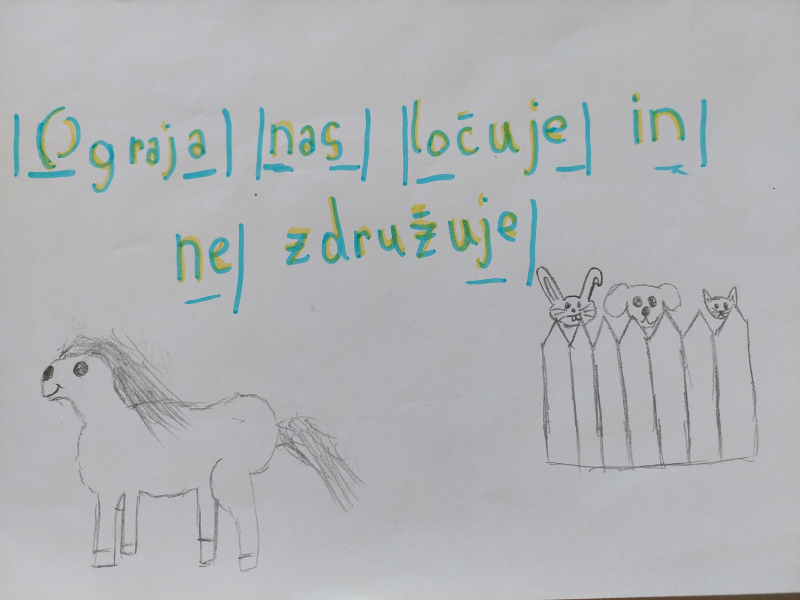 |Ograja| |nas| |ločuje| in|
ne| združuje|